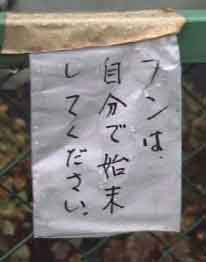 フンは、
自分で始末
してください。